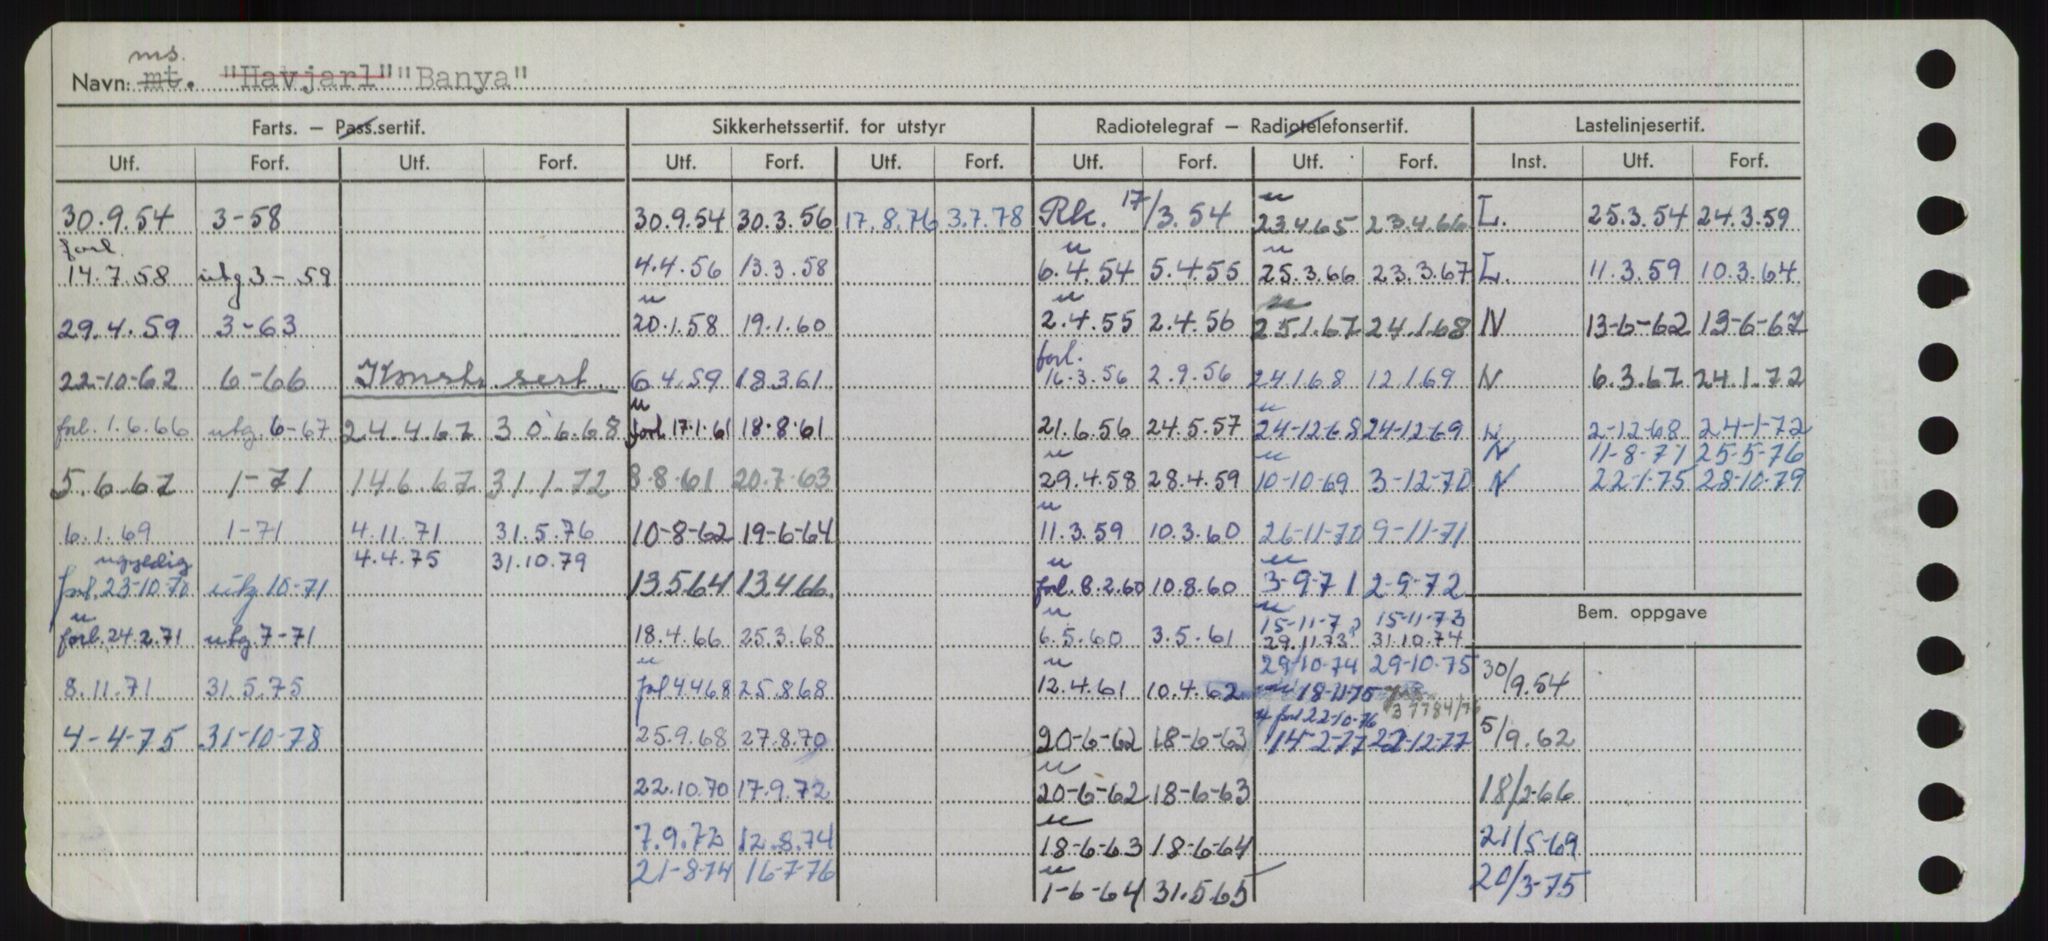 ms.
Navn: mt. "Havjarl" "Banya"
Farts. – Pass.sertif. Sikkerhetssertif. for utstyr Radiotelegraf – Radiotelefonsertif. Lastelinjesertif.
Utf. Forf. Utf. Forf. Utf. Forf. Utf. Forf. Utf. Forf. Utf. Forf. Inst. Utf. Forf.
30.9.54 3-58 30.9.54 30.3.56 17.8.76 3.7.78 Rk. 17/3.54 u 23.4.65 23.4.66 L. 25.3.54 24.3.59
forl. 14.7.58 utg 3-59 4.4.56 13.3.58 u 6.4.54 5.4.55 u 25.3.66 23.3.67 L. 11.3.59 10.3.64
29.4.59 3-63 u 20.1.58 19.1.60 u 2.4.55 2.4.56 u 25.1.67 24.1.68 N 13-6-62 13-6-67
22-10-62 6-66 Konstr. sert. 6.4.59 18.3.61 forl. 16.3.56 2.9.56 24.1.68 12.1.69 N 6.3.67 24.1.72
forl. 1.6.66 utg. 6-67 24.4.67 30.6.68 u forl 17.1.61 18.8.61 21.6.56 24.5.57 u 24-12-68 24-12-69 N 2-12-68 24-1-72
N 11-8-71 25-5-76
5.6.67 1-71 14.6.67 31.1.72 8.8.61 20.7.63 u 29.4.58 28.4.59 u 10-10-69 3-12-70 N 22-1-75 28-10-79
6.1.69 1-71 4.11.71 31.5.76 10-8-62 19-6-64 u 11.3.59 10.3.60 26-11-70 9-11-71
4.4.75 31.10.79
ugyldig
forl. 23-10-70 utg. 10-71 13.5.64 13.4.66. u forl. 8.2.60 10.8.60 u 3-9-71 2-9-72
Bem. oppgave
u 15-11-72 15-11-73
u forl. 24.2.71 utg 7-71 18.4.66 25.3.68 u 6.5.60 3.5.61 29.11.73 31.10.74
29-10-74 29-10-75
8.11.71 31.5.75 u forl 4.4.68 25.8.68 u 12.4.61 10.4.62 18-11-75 30/9.54
u forl 22-10-76
4-4-75 31-10-78 25.9.68 27.8.70 20-6-62 18-6-63 14-2-77 22-12-77 5/9.62
22.10.70 17.9.72 u 20-6-62 18-6-63 18/2-66
7.9.72 12.8.74 u 18-6-63 18-6-64 21/5-69
21-8-74 16-7-76 u 1-6-64 31.5.65 20/3-75